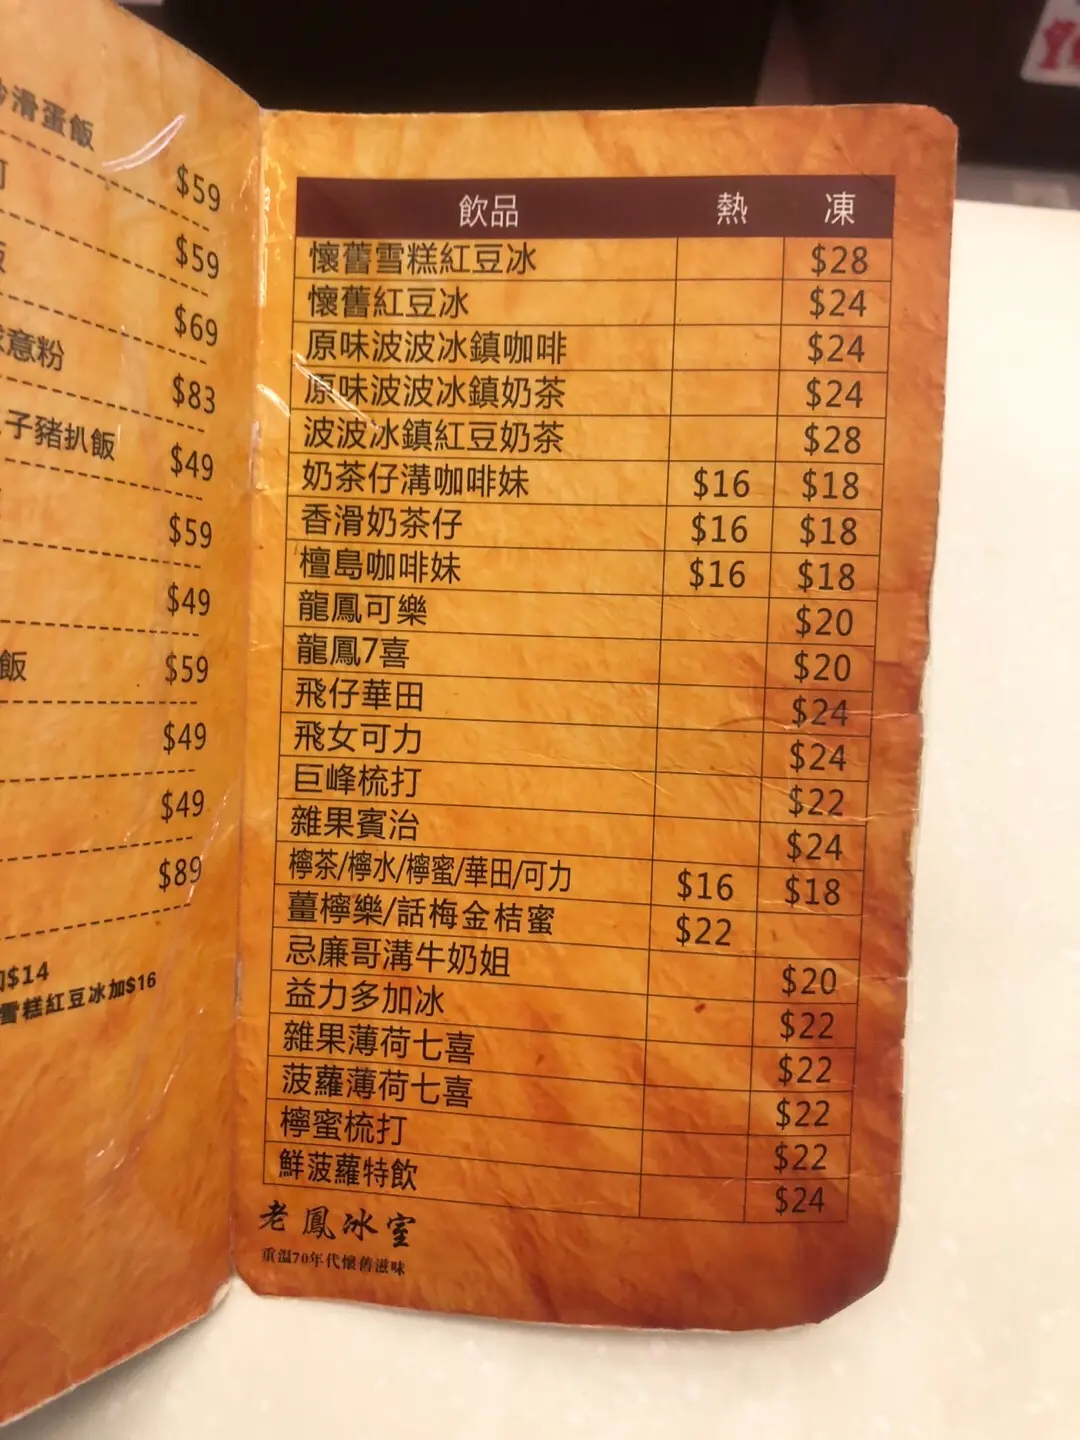 滑蛋飯
$59
$59
$69
意粉
$83
子豬扒飯
$49
$59
$49
飯
$59
$49
$49
$89
$14
雪糕紅豆冰加$16
飲品 熱 凍
懷舊雪糕紅豆冰 $28
懷舊紅豆冰 $24
原味波波冰鎮咖啡 $24
原味波波冰鎮奶茶 $24
波波冰鎮紅豆奶茶 $28
奶茶仔溝咖啡妹 $16 $18
香滑奶茶仔 $16 $18
檀島咖啡妹 $16 $18
龍鳳可樂 $20
龍鳳7喜 $20
飛仔華田 $24
飛女可力 $24
巨峰梳打 $22
雜果賓治 $24
檸茶/檸水/檸蜜/華田/可力 $16 $18
薑檸樂/話梅金桔蜜 $22
忌廉哥溝牛奶姐 $20
益力多加冰 $22
雜果薄荷七喜 $22
菠蘿薄荷七喜 $22
檸蜜梳打 $22
鮮菠蘿特飲 $24
老鳳冰室
重溫70年代懷舊滋味